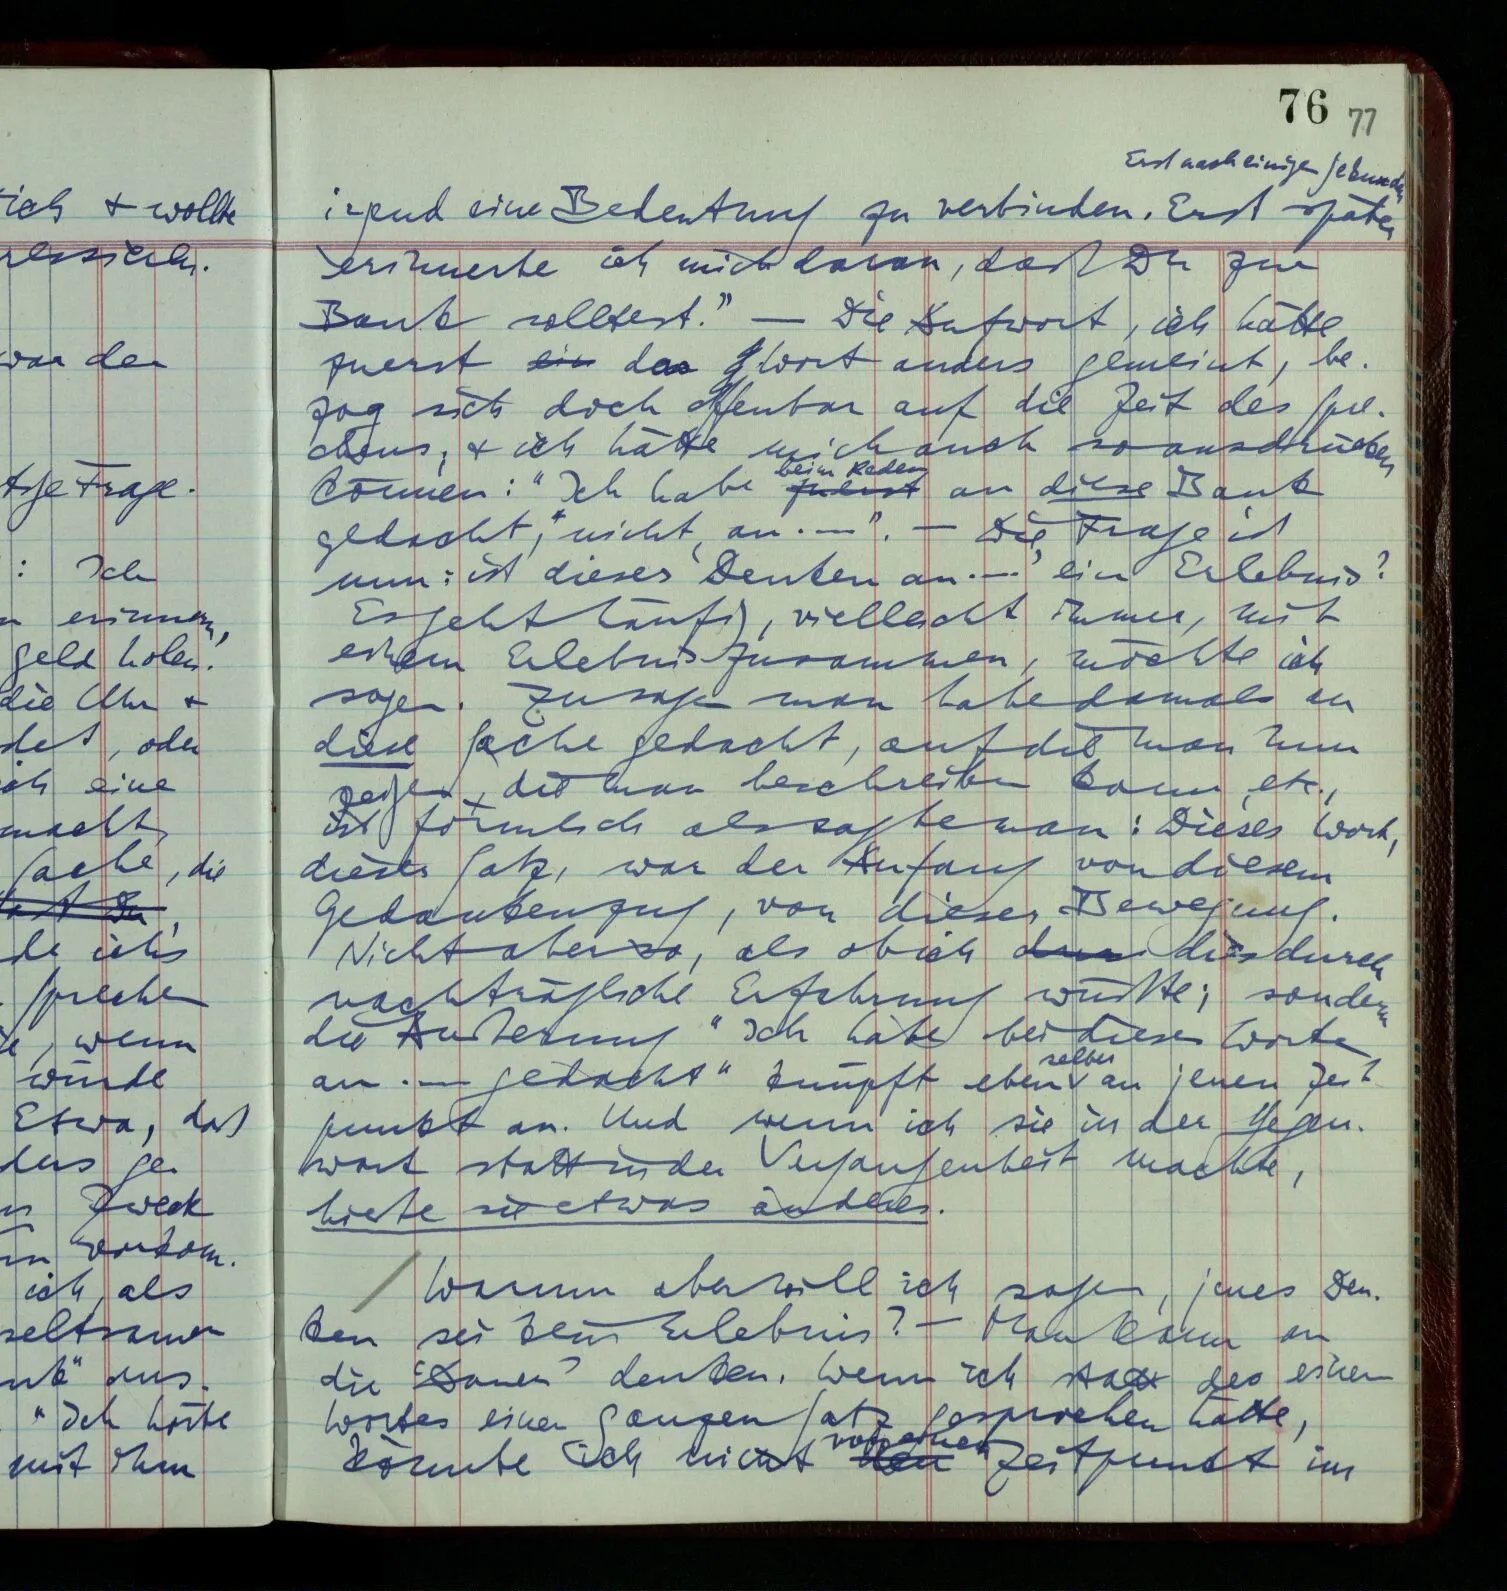 76 77
Erst nach einigen Sekunden
irgend eine Bedeutung zu verbinden. Erst später
erinnerte ich mich daran, daß Du zur
Bank solltest.” — Die Antwort, ich hätte
zuerst ein das Wort anders gemeint, be-
zog sich doch offenbar auf die Zeit des Spre-
chens, & ich hätte mich auch so ausdrücken
beim Reden
können: “Ich habe zuerst an diese Bank
gedacht, nicht an .—”. — Die Frage ist
nun: ist dieses ‘Denken an .—’ ein Erlebnis?
Es geht häufig, vielleicht immer, mit
einem Erlebnis zusammen, möchte ich
sagen. Zu sagen man habe damals an
diese Sache gedacht, auf die man nun
zeigen, die man beschreiben kann, etc.,
ist förmlich als sagte man: Dieses Wort,
dieser Satz, war der Anfang von diesem
Gedankenzug, von dieser Bewegung.
Nicht aber so, als ob ich dies durch
nachträgliche Erfahrung wüßte; sondern
die Äußerung “Ich habe bei diesen Worten
selber
an .— gedacht” knüpft eben an jenen Zeit-
punkt an. Und wenn ich sie in der Gegen-
wart statt in der Vergangenheit machte,
hieße sie etwas anderes.
Warum aber will ich sagen, jenes Den-
ken sei kein Erlebnis? — Man kann an
die ‘Dauer’ denken. Wenn ich statt des einen
Wortes einen ganzen Satz gesprochen hätte,
von einem
könnte ich nicht den Zeitpunkt im
ich & wollte
war der
Frage.
: Ich
erinnern,
Geld holen.
die Uhr &
, oder
ich eine
macht,
Sache, die
Du
ich's
sprechen
, wenn
würde
Etwa, daß
ge-
Zweck
vorkom-
ich, als
seltsamer
aus.
“Ich hörte
mit ihm